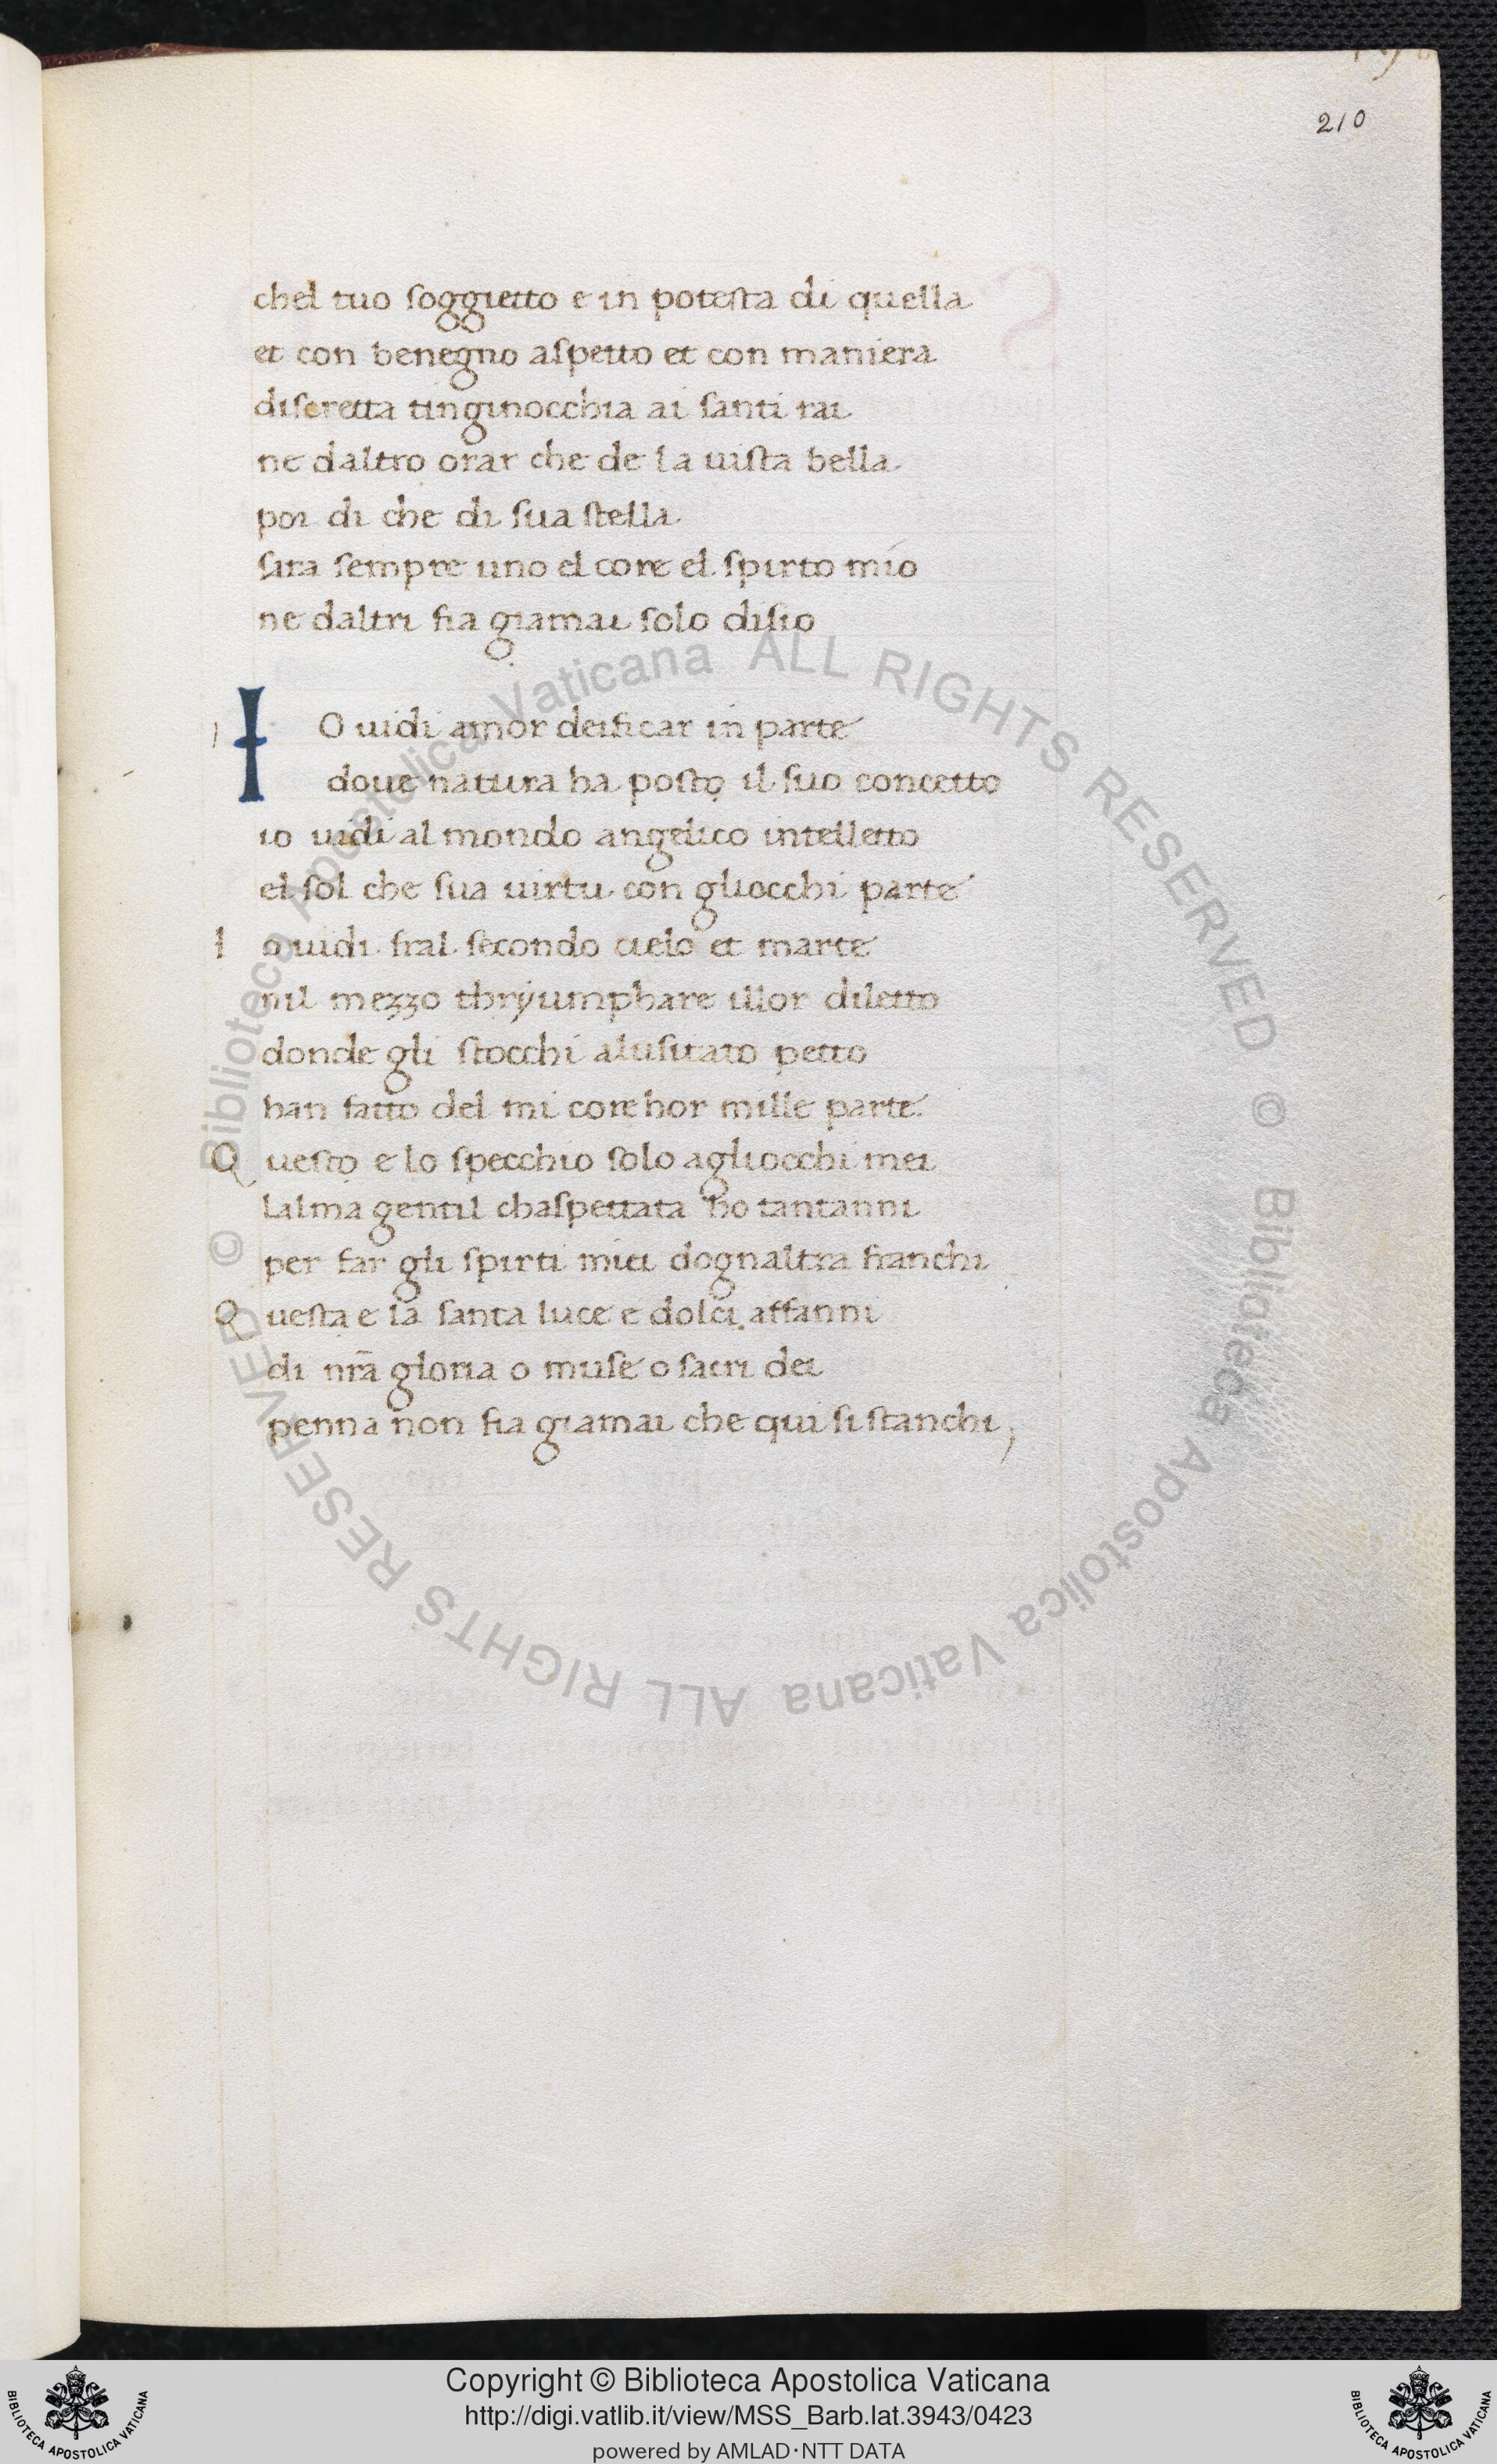 210
chel tuo soggietto e in potesta di quella
et con benegno aspetto et con maniera
discretta tinginocchia ai santi rai
ne daltro orar che de la uista bella
poi di che di sua stella
sira sempre uno el core el spirto mio
ne daltri fia giamai solo disio
IO uidi amor deificar in parte
doue natura ha posto il suo concetto
io uidi al mondo angelico intelletto
el sol che sua uirtu con gliocchi parte
I o uidi fral secondo cielo et marte
nil mezzo thryumphare illor diletto
donde gli stocchi alusitato petto
han fatto del mi core hor mille parte
Q uesto e lo specchio solo agliocchi mei
lalma gentil chaspettata ho tantanni
per far gli spirti miei dognaltra franchi
Q uesta e la santa luce e dolci affanni
di nr̄a gloria o muse o sacri dei
penna non fia giamai che qui si stanchi;
© Biblioteca Apostolica Vaticana ALL RIGHTS RESERVED © Biblioteca Apostolica Vaticana ALL RIGHTS RESERVED
Copyright © Biblioteca Apostolica Vaticana
http://digi.vatlib.it/view/MSS_Barb.lat.3943/0423
powered by AMLAD·NTT DATA
BIBLIOTECA APOSTOLICA VATICANA
BIBLIOTECA APOSTOLICA VATICANA